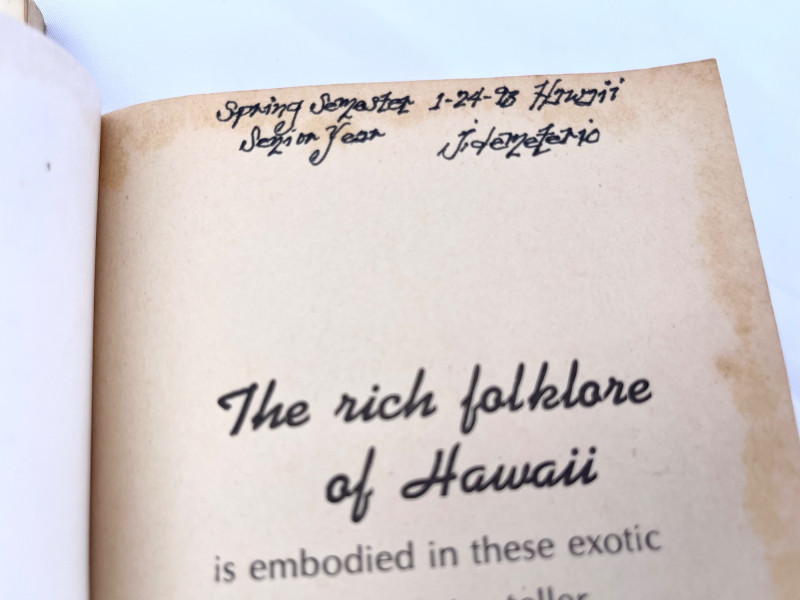 Spring Semester 1-24-98 Hawaii
Senior Year J.demeterio
The rich folklore
of Hawaii
is embodied in these exotic
teller